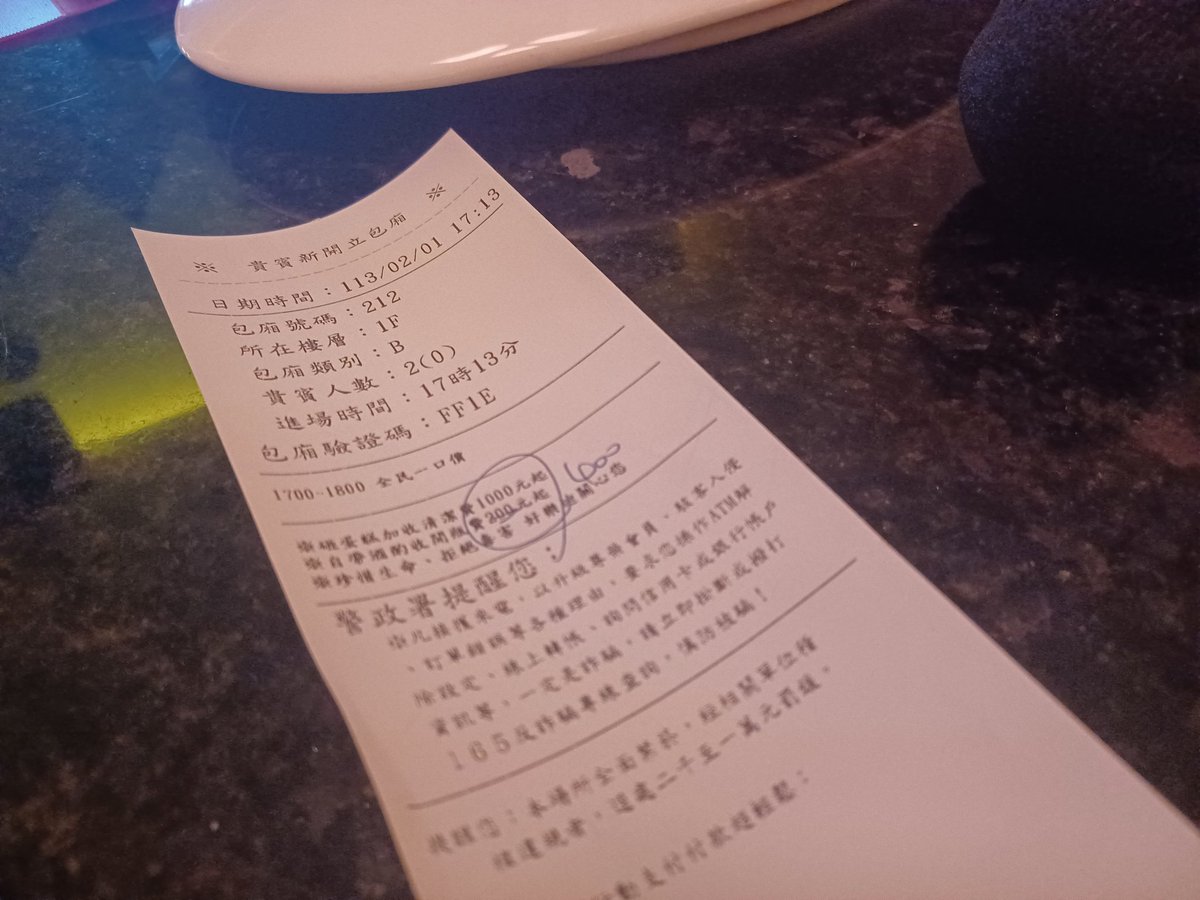 ※ 貴賓新開立包廂 ※
日期時間：113/02/01 17:13
包廂號碼：212
所在樓層：1F
包廂類別：B
貴賓人數：2(0)
進場時間：17時13分
包廂驗證碼：FF1E
1700~1800 全民一口價
※砸蛋糕加收清潔費1000元起
※自帶酒酌收開瓶費200元起 600
※珍惜生命、拒絕毒害 好樂迪關心您
警政署提醒您：
※凡接獲來電，以升級尊榮會員、駭客入侵
、訂單錯誤等各種理由，要求您操作ATM解
除設定、線上轉帳、詢問信用卡或銀行帳戶
資訊等，一定是詐騙，請立即掛斷或撥打
165反詐騙專線查詢，慎防被騙！
提醒您：本場所全面禁菸，經相關單位稽
核違規者，逕處二千至一萬元罰鍰。
動支付付款超輕鬆：